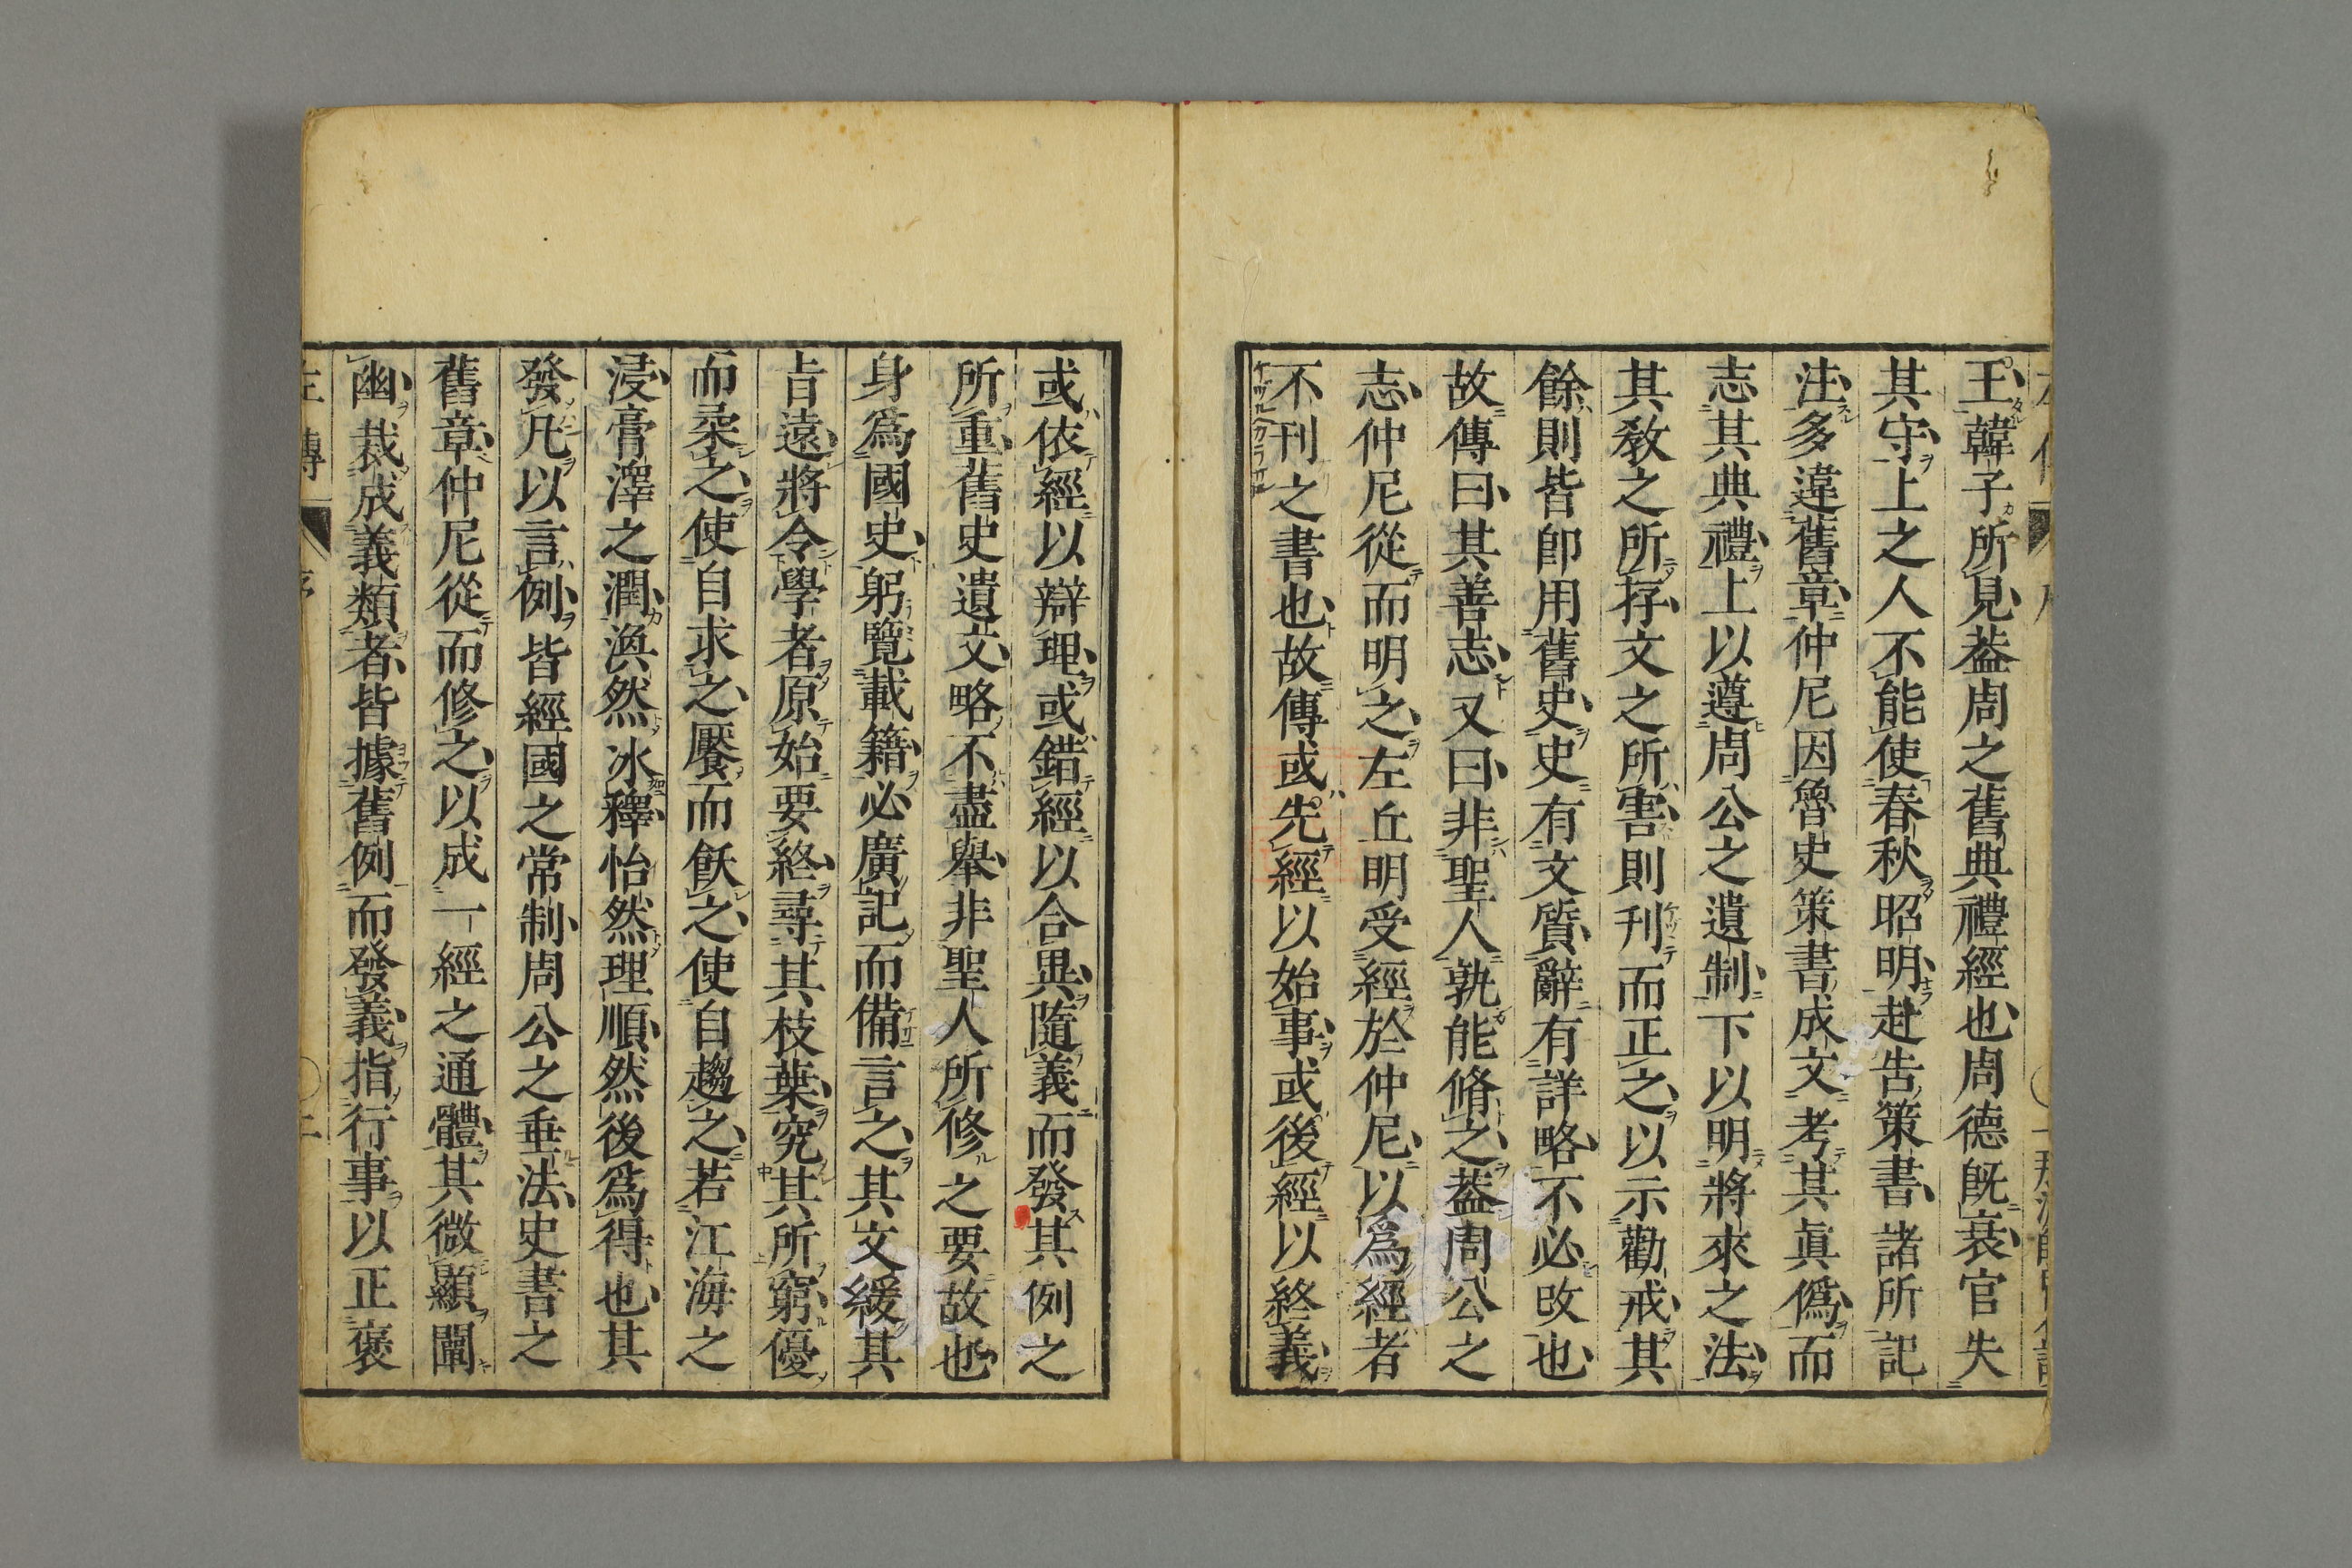 王韓子所見葢周之舊典禮經也周德既衰官失
其守上之人不能使春秋昭明赴告策書諸所記
注多違舊章仲尼因魯史策書成文考其眞僞而
志其典禮上以遵周公之遺制下以明將來之法
其敎之所存文之所害則刊而正之以示勸戒其
餘則皆卽用舊史史有文質辭有詳略不必改也
故傳曰其善志又曰非聖人孰能脩之葢周公之
志仲尼從而明之左丘明受經於仲尼以爲經者
不刊之書也故傳或先經以始事或後經以終義
或依經以辯理或錯經以合異隨義而發其例之
所重舊史遺文略不盡舉非聖人所修之要故也
身爲國史躬覽載籍必廣記而備言之其文緩其
旨遠將令學者原始要終尋其枝葉究其所窮優
而柔之使自求之饜而飫之使自趨之若江海之
浸膏澤之潤渙然冰釋怡然理順然後爲得也其
發凡以言例皆經國之常制周公之垂法史書之
舊章仲尼從而修之以成一經之通體其微顯闡
幽裁成義類者皆據舊例而發義指行事以正褒
左傳 序 二